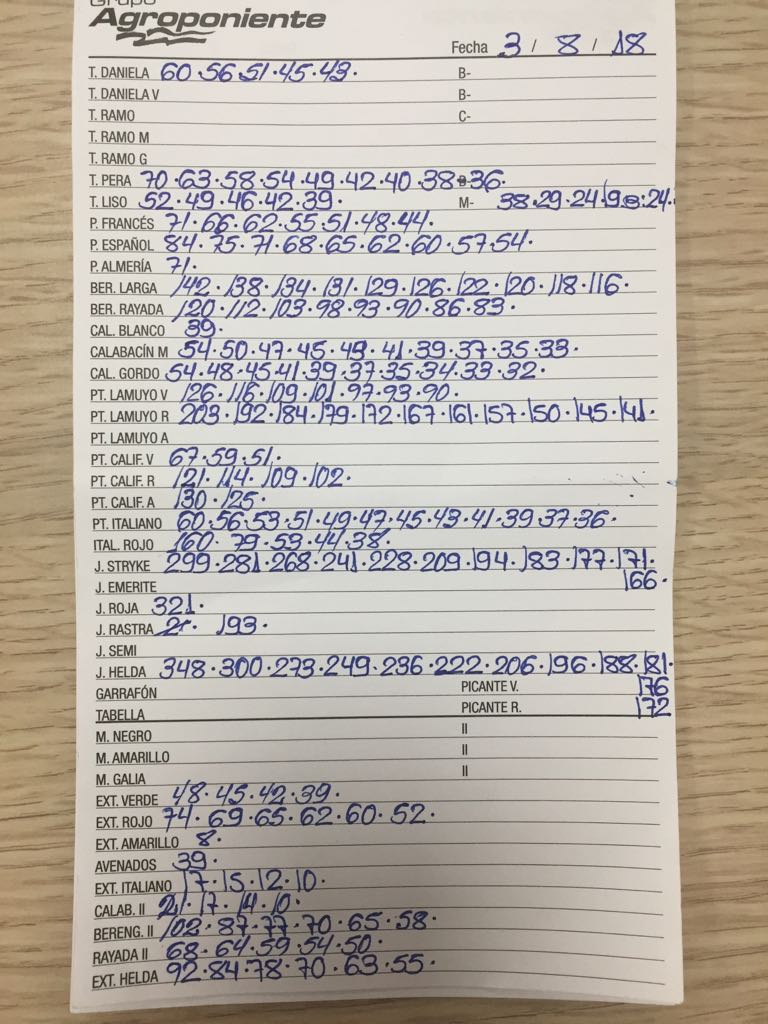 Grupo
Agroponiente
Fecha 3 / 8 / 18
T. DANIELA 60.56.51.45.43. B-
T. DANIELA V B-
T. RAMO C-
T. RAMO M
T. RAMO G
T. PERA 70.63.58.54.49.42.40.38.36.
T. LISO 52.49.46.42.39. M- 38.29.24.
P. FRANCÉS 71.66.62.55.51.48.44.
P. ESPAÑOL 84.75.71.68.65.62.60.57.54.
P. ALMERÍA 71.
BER. LARGA 142.138.134.131.129.126.122.120.118.116.
BER. RAYADA 120.112.103.98.93.90.86.83.
CAL. BLANCO 39.
CALABACÍN M 54.50.47.45.43.41.39.37.35.33.
CAL. GORDO 54.48.45.41.39.37.35.34.33.32.
PT. LAMUYO V 126.116.109.101.97.93.90.
PT. LAMUYO R 203.192.184.179.172.167.161.157.150.145.141.
PT. LAMUYO A
PT. CALIF. V 67.59.51.
PT. CALIF. R 121.114.109.102.
PT. CALIF. A 130.125.
PT. ITALIANO 60.56.53.51.49.47.45.43.41.39.37.36.
ITAL. ROJO 160.79.59.44.38.
J. STRYKE 299.281.268.241.228.209.194.183.177.171.
J. EMERITE 166.
J. ROJA 321.
J. RASTRA 193.
J. SEMI
J. HELDA 348.300.273.249.236.222.206.196.188.181.
GARRAFÓN PICANTE V. 176
TABELLA PICANTE R. 172
M. NEGRO II
M. AMARILLO II
M. GALIA II
EXT. VERDE 48.45.42.39.
EXT. ROJO 74.69.65.62.60.52.
EXT. AMARILLO 8.
AVENADOS 39.
EXT. ITALIANO 17.15.12.10.
CALAB. II 21.17.14.10.
BERENG. II 102.87.77.70.65.58.
RAYADA II 68.64.59.54.50.
EXT. HELDA 92.84.78.70.63.55.